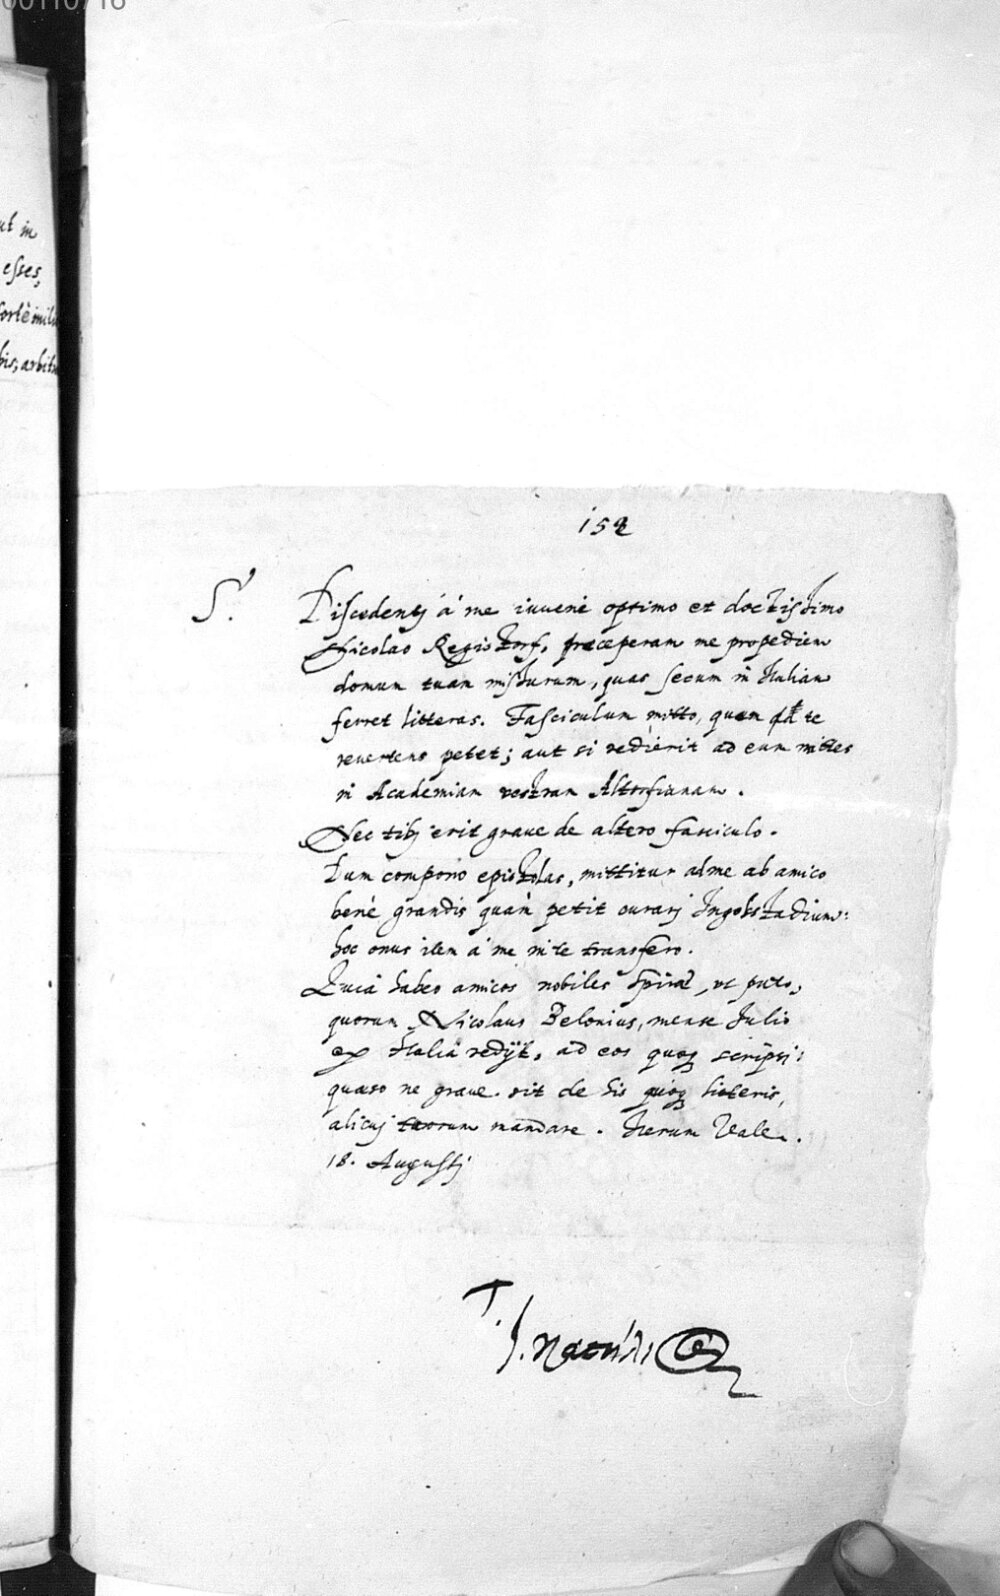 00110716
ut in
esses,
bis, arbitr
152
S.
Discedentj á me iuvene optimo et doctissimo
Nicolao Regisdorf, praeceperam me propediem
domum tuam missurum, quas secum in Italiam
ferret litteras. Fasciculum mitto, quem te
revertens petet; aut si redierit ad eum mittes
in Academiam vestram Altorfianam.
Nec tibj erit graue de altero fasciculo.
Dum compono epistolas, mittitur ad me ab amico
bene grandis quam petit curarj Ingolstadium:
hoc onus item á me in te transfero.
Quia habeo amicos nobiles Spirae, ut puto,
quorum Nicolaus Belonius, mense Julio
ex Italia redijt, ad eos quoq scripsi:
quaeso ne graue sit de his quoq litteris,
alicuj tuorum mandare. Iterum Vale.
18. Augustj
T.
J.